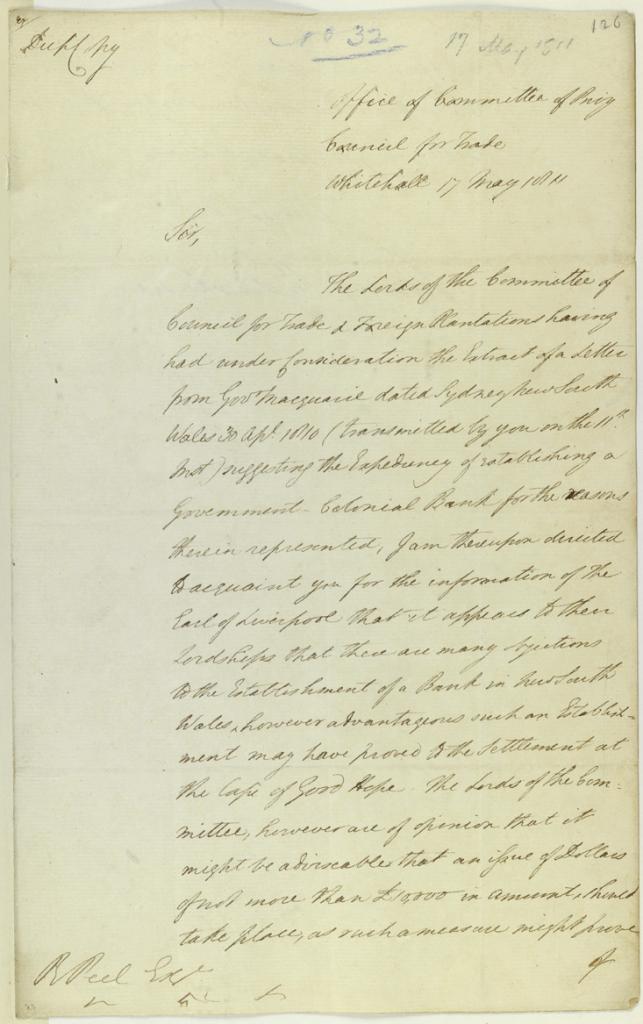 126
No 32
17 May 1811
Office of Committee of Privy
Council for Trade
Whitehall 17 May 1811
Sir,
The Lords of the Committee of
Council for Trade & Foreign Plantations having
had under Consideration the Extract of a Letter
from Govr Macquarie dated Sydney New South
Wales 30 Apl. 1810 (transmitted by you on the 11th
Inst) suggesting the Expediency of establishing a
Government - Colonial Bank for the reasons
therein represented, I am thereupon directed
to acquaint you for the information of the
Earl of Liverpool that it appears to their
Lordships that there are many objections
to the Establishment of a Bank in New South
Wales, however advantageous such an Establish-
ment may have proved to the Settlement at
the Cape of Good Hope. The Lords of the Com-
mittee, however are of opinion that it
might be adviseable that an issue of Dollars
of not more than £10,000 in amount, should
take place, as such a measure might prove
of
R Peel Esqr